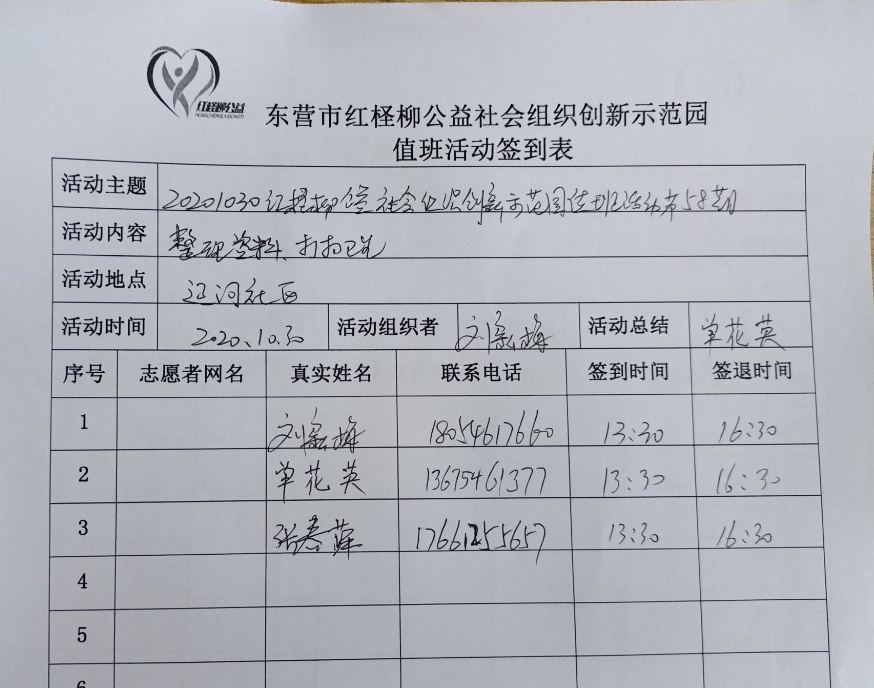 红柽柳公益
东营市红柽柳公益社会组织创新示范园
值班活动签到表
活动主题 20201030红柽柳公益社会组织创新示范园值班活动第58期
活动内容 整理资料、打扫卫生
活动地点 辽河社区
活动时间 2020.10.30 活动组织者 刘 梅 活动总结 单花英
序号 志愿者网名 真实姓名 联系电话 签到时间 签退时间
1 刘 梅 18054617660 13:30 16:30
2 单花英 13675461377 13:30 16:30
3 张春萍 17661255657 13:30 16:30
4
5
6